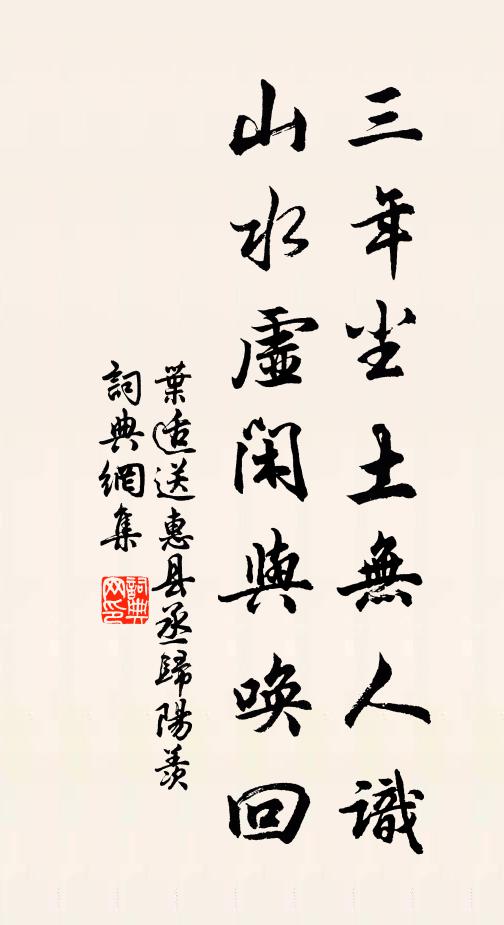 三年尘土無人識
山水虛闲與喚回
葉适送惠县丞歸陽羨
詞典網集
詞典網印